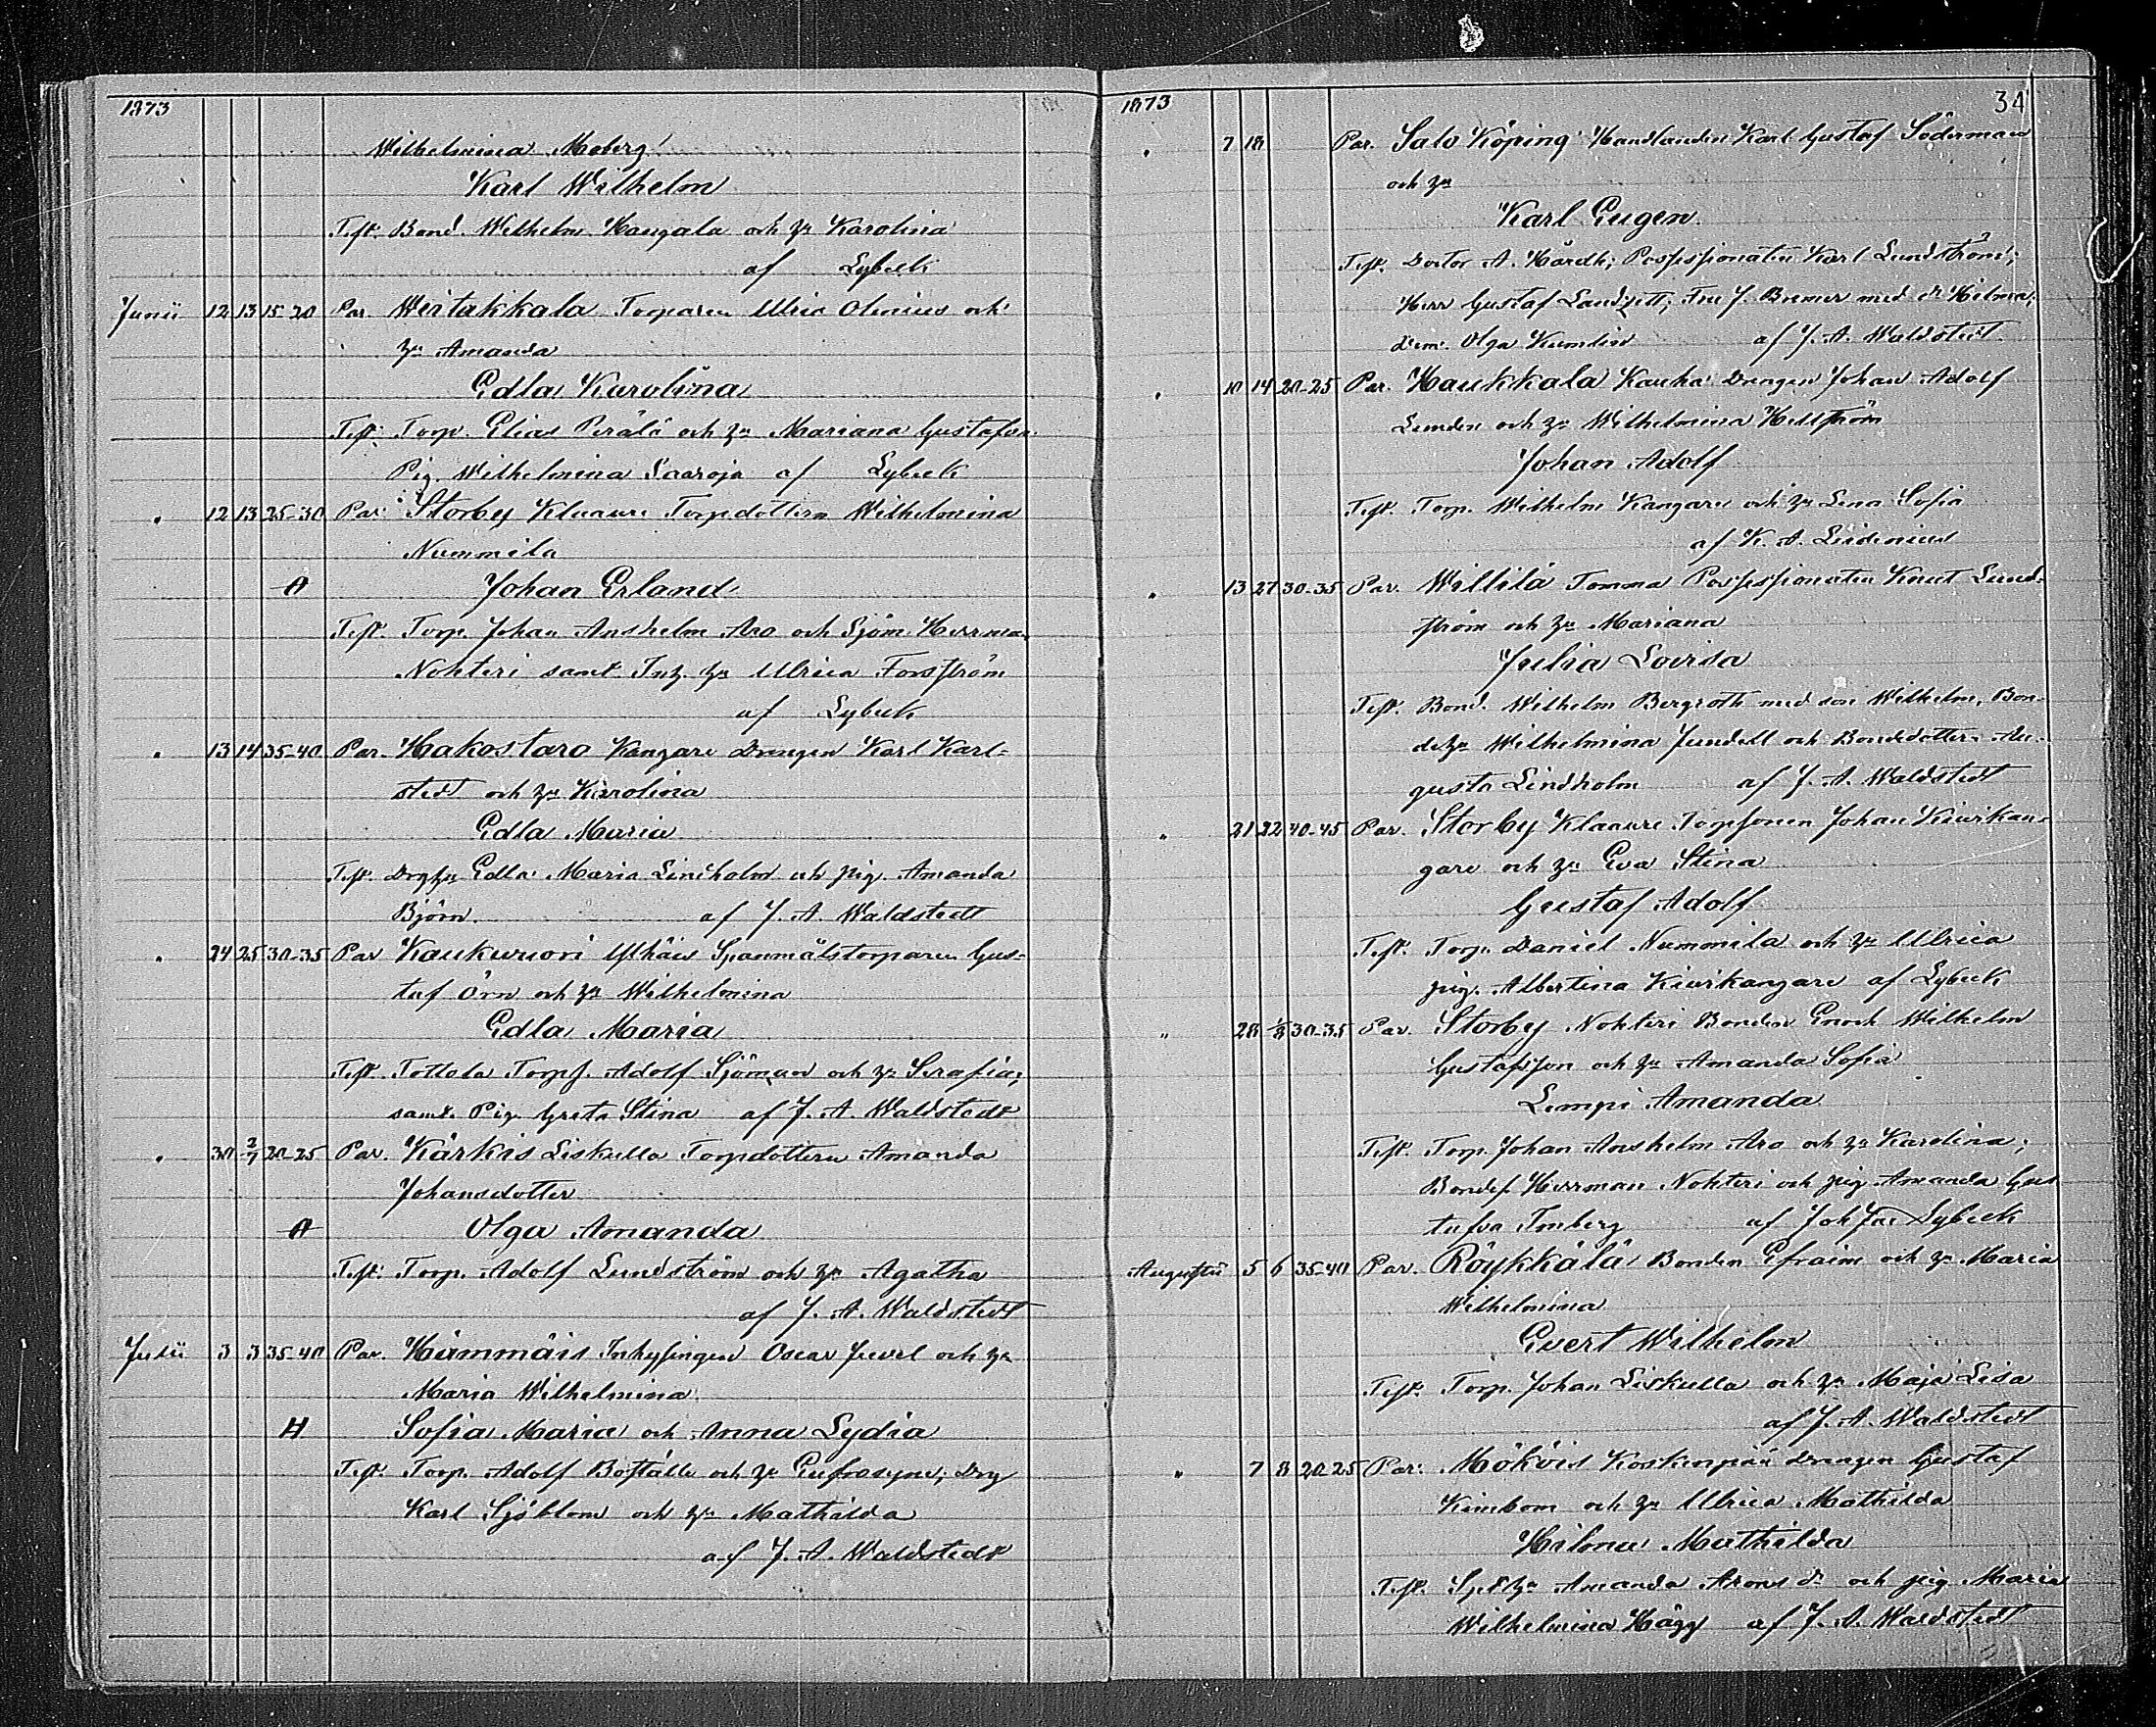 1873
Wilhelmina Moberg
Karl Wilhelm
Test. Bond. Wilhelm Kangala och hu Karolina
af Lybeck
Junii 12 13 15-20 Par. Weitakkala Torparen Ulric Olenius och
hu Amanda
Edla Karolina
Test: Torp. Elias Perälä och hu Mariana Gustafva
Pig. Wilhelmina Saaroja af Lybeck
" 12 13 25-30 Par. Storby Kluaure Torpdottern Wilhelmina
Nummila
A Johan Erland
Test. Torp. Johan Anshelm Aro och Sjöm. Herrman
Nohteri samt Inh. hu Ulrica Forsström
af Lybeck
" 13 14 35-40 Par. Hakostaro Kangare Drengen Karl Karl-
stedt och hu Karolina
Edla Maria
Test. Drghu Edla Maria Lindholm och pig. Amanda
Björn. af J. A. Waldstedt
" 24 25 30-35 Par Kaukuruori Ylhäis Spanmålstorparen Gus-
taf Örn och hu Wilhelmina
Edla Maria
Test. Tottola Torps. Adolf Sjöman och hu Serafia;
samt. Pig. Greta Stina af J. A. Waldstedt
" 30 2/7 20-25 Par. Kärkis Liskulla Torpdottern Amanda
Johansdotter
A Olga Amanda
Test: Torp. Adolf Lundström och hu Agatha
af J. A. Waldstedt
Julii 3 3 35-40 Par. Hämmäis Inhysingen Oscar Juvel och hu
Maria Wilhelmina
H Sofia Maria och Anna Lydia
Test: Torp. Adolf Boställe och hu Eufrosyne; Drg
Karl Sjöblom och hu Mathilda
af J. A. Waldstedt
1873 34
" 7 18 Par. Salo Köping Handlanden Karl Gustaf Söderman
och hu
Karl Eugen
Test. Doctor A. Hårdh; Possessionaten Karl Lundström;
Herr Gustaf Landzett; Fru J. Bremer med dr Hilma;
dem. Olga Kumlin af J. A. Waldstedt.
" 10 14 20-25 Par. Haukkala Kauka Drengen Johan Adolf
Lunden och hu Wilhelmina Hellström
Johan Adolf
Test. Torp. Wilhelm Kangare och hu Lena Sofia
af K. A. Lindenius
" 13 27 30-35 Par. Willilä Tomma Possessionaten Knut Lund-
ström och hu Mariana
Julia Lovisa
Test. Bond. Wilhelm Bergroth med son Wilhelm, Bon-
dehu Wilhelmina Jundell och Bondedotter Au-
gusta Lindholm af J. A. Waldstedt
" 21 22 40-45 Par. Storby Klaaure Torpsonen Johan Kiurikan-
gare och hu Eva Stina
Gustaf Adolf
Test. Torp. Daniel Nummila och hu Ulrica
pig. Albertina Kiurikangare af Lybeck
" 28 1/8 30-35 Par. Storby Nohteri Bonden Enoch Wilhelm
Gustafsson och hu Amanda Sofia
Lempi Amanda
Test. Torp. Johan Anshelm Aro och hu Karolina;
Bondes. Herrman Nohteri och pig. Amanda Gus
tafva Imberg af Joh Jac Lybeck
Augusti 5 6 35-40 Par. Röykkälä Bonden Efraim och hu Maria
Wilhelmina
Evert Wilhelm
Test. Torp. Johan Liskulla och hu Maja Lisa
af J. A. Waldstedt
" 7 8 20-25 Par: Mököis Koskenpää Drengen Gustaf
Kimbom och hu Ulrica Mathilda
Hilma Mathilda
Test. hu Amanda Arons dr och pig. Maria
Wilhelmina Hägg af J. A. Waldstedt